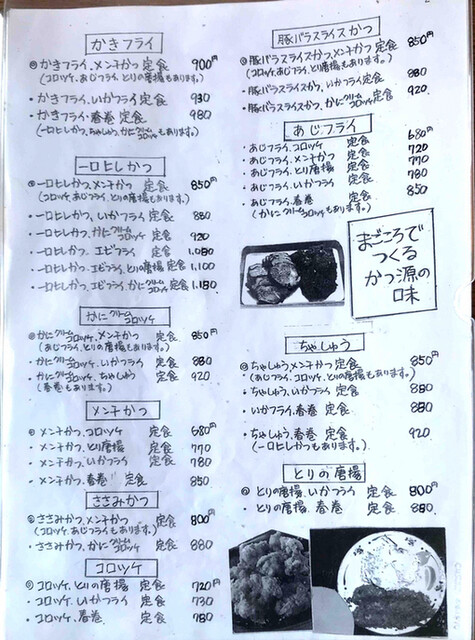 かきフライ
◎かきフライ、メンチかつ 定食 900円
(コロッケ、あじフライ、とりの唐揚もあります。)
・かきフライ、いかフライ 定食 930
・かきフライ、春巻 定食 980
(一口ヒレかつ、ちゃしゅう、かにクリームコロッケもあります。)
一口ヒレかつ
◎一口ヒレかつ、メンチかつ 定食 850円
(コロッケ、あじフライ、とりの唐揚もあります。)
・一口ヒレかつ、いかフライ 定食 880
・一口ヒレかつ、かにクリームコロッケ 定食 920
・一口ヒレかつ、エビフライ 定食 1,080
・一口ヒレかつ、エビフライ、とりの唐揚 定食 1,100
・一口ヒレかつ、エビフライ、かにクリームコロッケ 定食 1,180
かにクリームコロッケ
◎かにクリームコロッケ、メンチかつ 定食 850円
(あじフライ、とりの唐揚もあります。)
・かにクリームコロッケ、いかフライ 定食 880
・かにクリームコロッケ、ちゃしゅう 定食 920
(春巻もあります。)
メンチかつ
◎メンチかつ、コロッケ 定食 680円
・メンチかつ、とりの唐揚 定食 770
・メンチかつ、いかフライ 定食 780
・メンチかつ、春巻 定食 850
ささみかつ
◎ささみかつ、メンチかつ 定食 800円
(コロッケ、あじフライもあります。)
・ささみかつ、かにクリームコロッケ 定食 880
コロッケ
◎コロッケ、とりの唐揚 定食 720円
・コロッケ、いかフライ 定食 730
・コロッケ、春巻 定食 780
豚バラスライスかつ
◎豚バラスライスかつ、メンチかつ 定食 850円
(コロッケ、あじフライ、とりの唐揚もあります。)
・豚バラスライスかつ、いかフライ定食 880
・豚バラスライスかつ、かにクリームコロッケ定食 920
あじフライ
・あじフライ、コロッケ 定食 680円
・あじフライ、メンチかつ 定食 720
・あじフライ、とりの唐揚 定食 770
・あじフライ、いかフライ 定食 780
・あじフライ、春巻 定食 850
(かにクリームコロッケもあります。)
まごころで
つくる
かつ源の
味
ちゃしゅう
◎ちゃしゅう、メンチかつ 定食 850円
(あじフライ、コロッケ、とりの唐揚もあります。)
・ちゃしゅう、いかフライ 定食 880
・いかフライ、春巻 定食 880
・ちゃしゅう、春巻 定食 920
(一口ヒレかつもあります。)
とりの唐揚
◎とりの唐揚、いかフライ 定食 800円
・とりの唐揚、春巻 定食 880